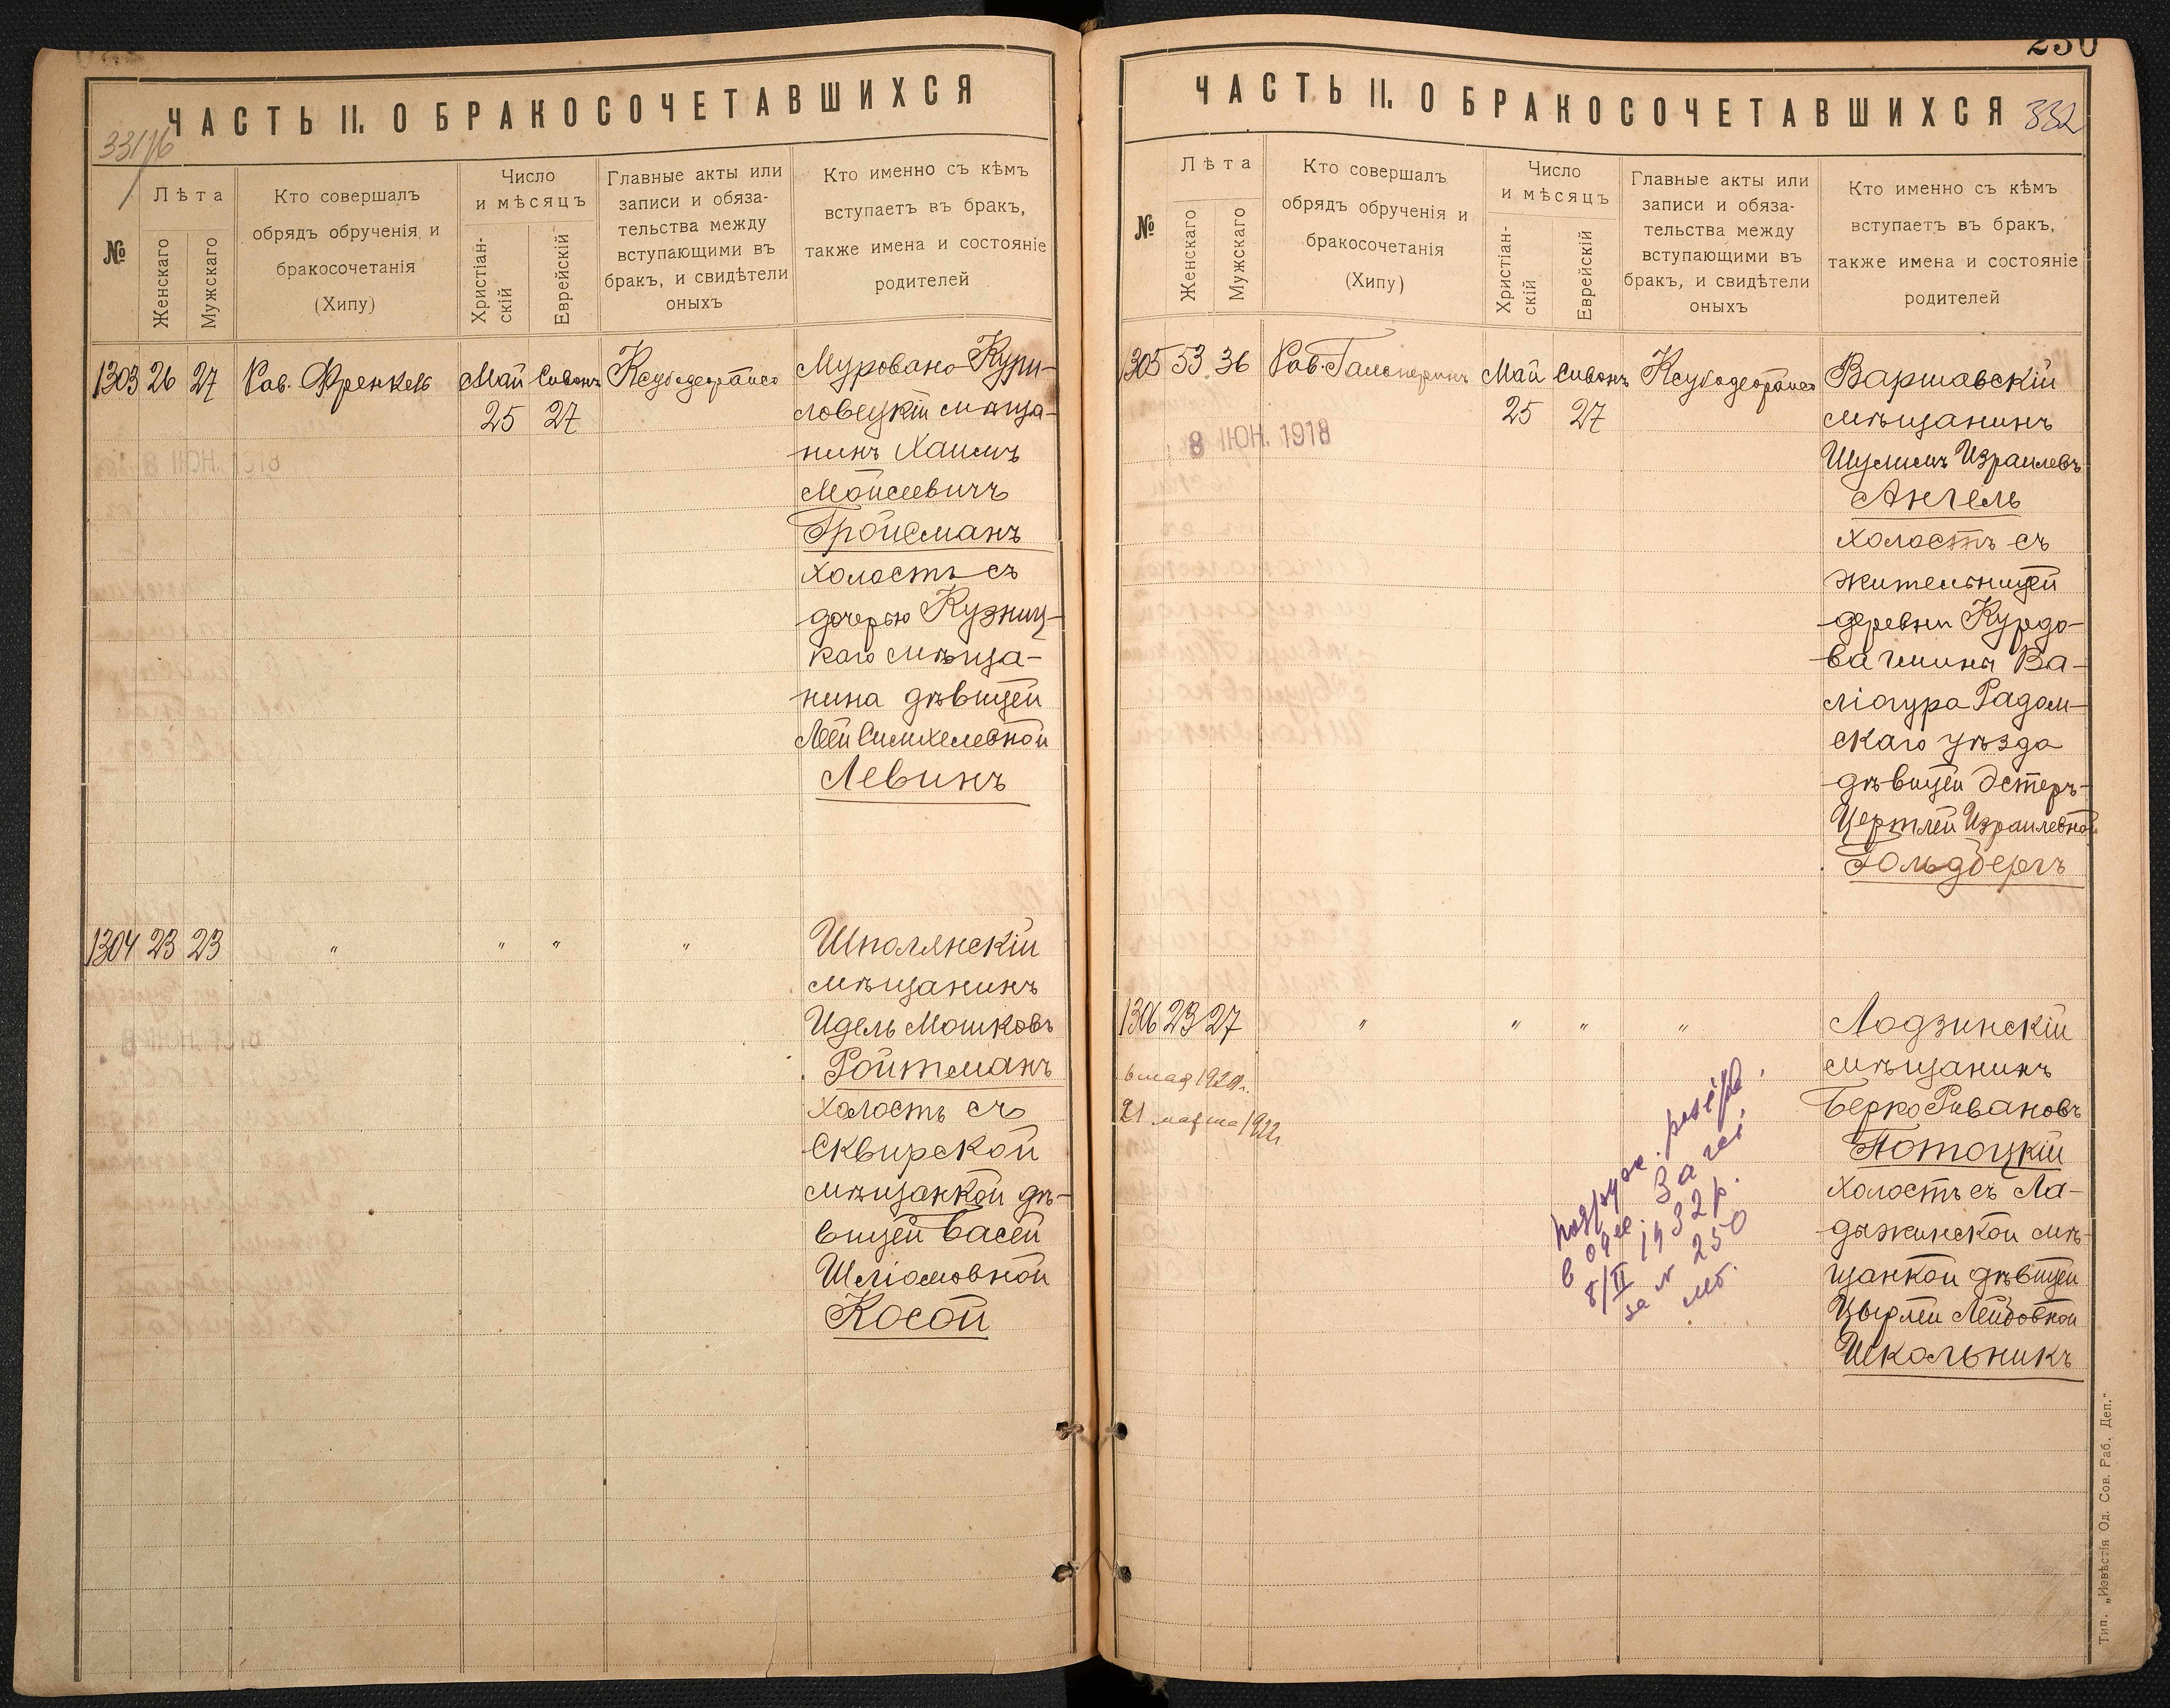 ЧАСТЬ II. О БРАКОСОЧЕТАВШИХСЯ
№
Лѣта
Женскаго
Мужскаго
Кто совершалъ
обрядъ обрученія и
бракосочетанія
(Хипу)
Число
и мѣсяцъ
Христіан-
скій
Еврейскій
Главные акты или
записи и обяза-
тельства между
вступающими въ
бракъ, и свидѣтели
оныхъ
Кто именно съ кѣмъ
вступаетъ въ бракъ,
также имена и состояніе
родителей
1303 26 27 Рав. Френкель Май Сивонъ
25 27
8 ІЮН. 1918
Муровано-Кури-
ловецкій мѣща-
нинъ Хаимъ
Мойсеевичъ
Гройсманъ
холостъ съ
дочерью Кузниц-
каго мѣща-
нина дѣвицей
Леей Симхелевной
Левинъ
1304 23 23 " " " "
Шполянскій
мѣщанинъ
Идель Мошковъ
Ройтманъ
холостъ съ
Сквирской
мѣщанкой дѣ-
вицей Басей
Шліомовной
Косой
250
ЧАСТЬ II. О БРАКОСОЧЕТАВШИХСЯ
332
№
Лѣта
Женскаго
Мужскаго
Кто совершалъ
обрядъ обрученія и
бракосочетанія
(Хипу)
Число
и мѣсяцъ
Христіан-
скій
Еврейскій
Главные акты или
записи и обяза-
тельства между
вступающими въ
бракъ, и свидѣтели
оныхъ
Кто именно съ кѣмъ
вступаетъ въ бракъ,
также имена и состояніе
родителей
1305 53 36 Рав. Гальперинъ Май Сивонъ
25 27
8 ІЮН. 1918
Варшавскій
мѣщанинъ
Шулимъ Израилевъ
Ангель
холостъ съ
жительницей
деревни
Радом-
скаго уѣзда
дѣвицей Эстеръ-
Цертлей Израилевной
Гольдбергъ
1306 23 27 " " " "
6 мая
21 марта 1922г.
Лодзинскій
мѣщанинъ
Берко Рувановъ
Потоцкій
холостъ съ Ла-
дыжинской мѣ-
щанкой дѣвицей
Цырлей Лейбовной
Школьникъ
8/II 1932 р.
за № 250
Тип. „Извѣстія Од. Сов. Раб. Деп."